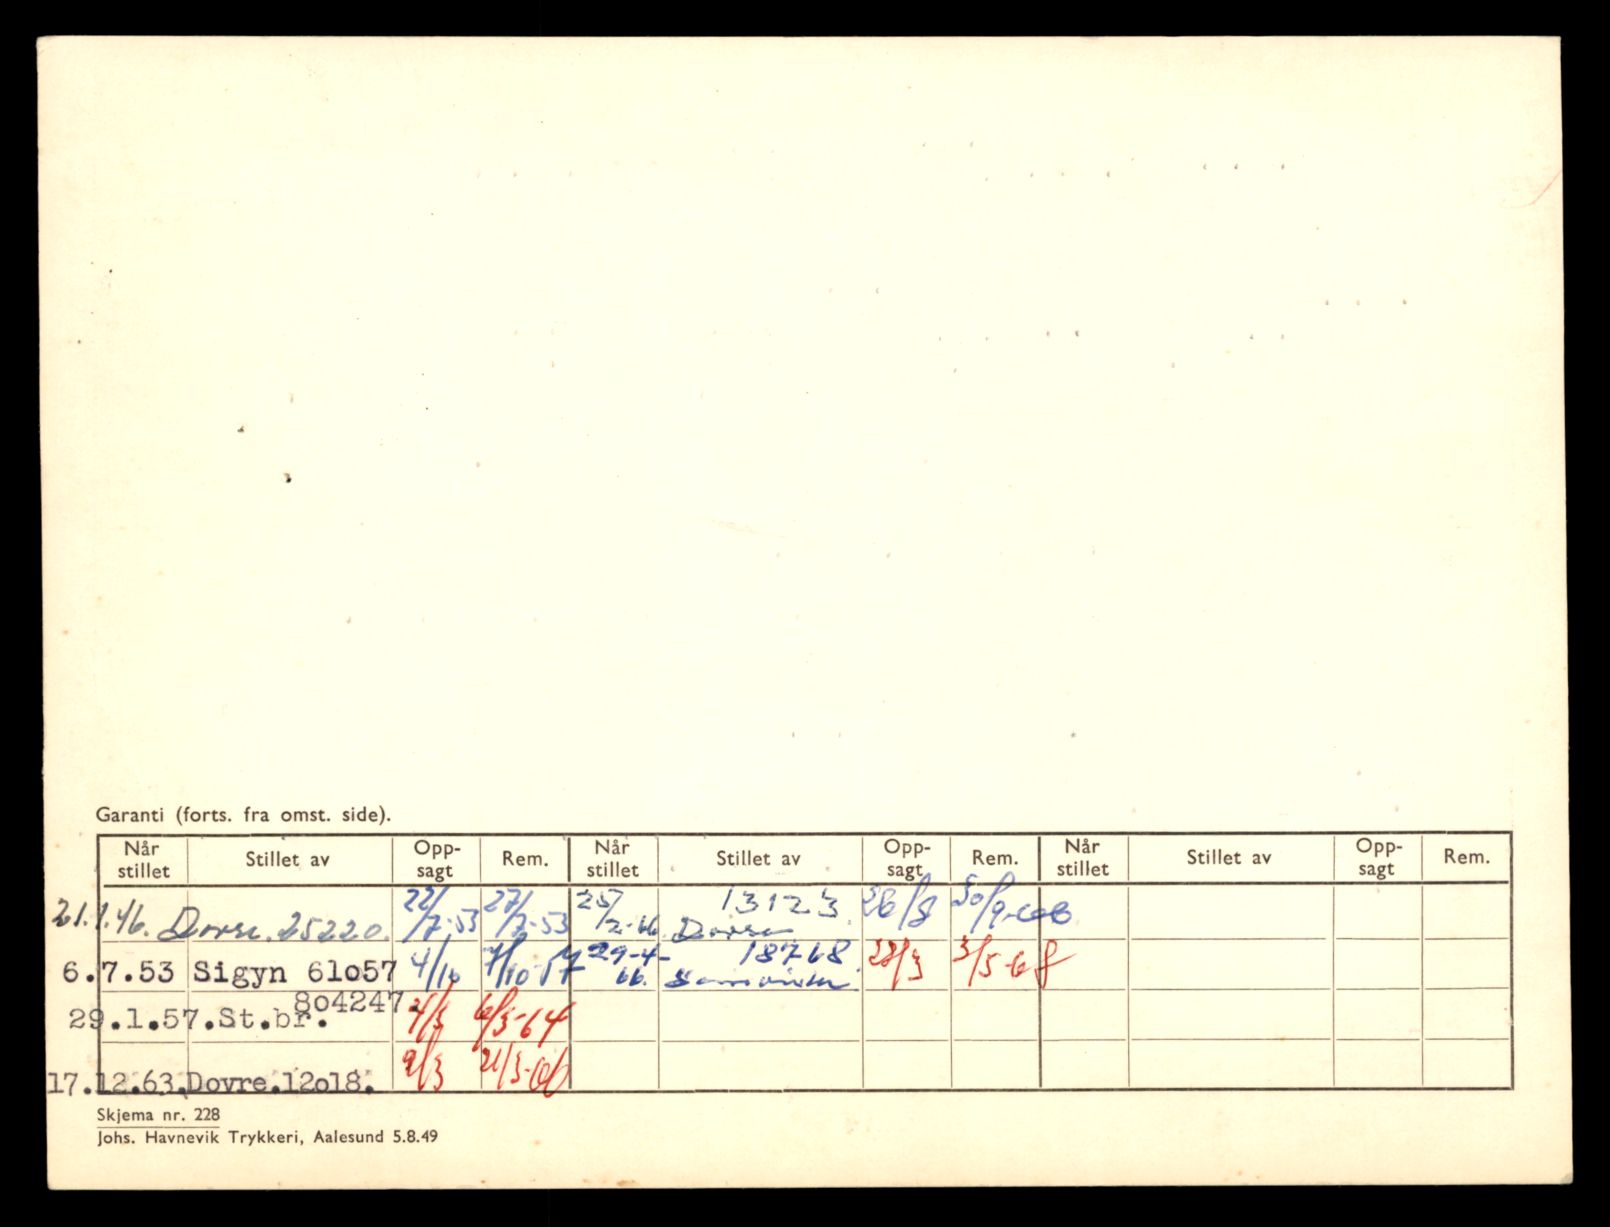 Garanti (forts. fra omst. side).
Når stillet Stillet av Opp- sagt Rem. Når stillet Stillet av Opp- sagt Rem. Når stillet Stillet av Opp- sagt Rem.
21.1.46. Dovre. 25220. 22/7-53 27/7-53 25/2-66 13123 Dovre 26/8
6.7.53 Sigyn 61o57 4/10 7/10-57 29-4-66. 18768 28/3 3/5-68
29.1.57.St.br. 8o4247. 4/3 6/3-64
17.12.63.Dovre.12o18. 9/3 21/3-66
Skjema nr. 228
Johs. Havnevik Trykkeri, Aalesund 5.8.49